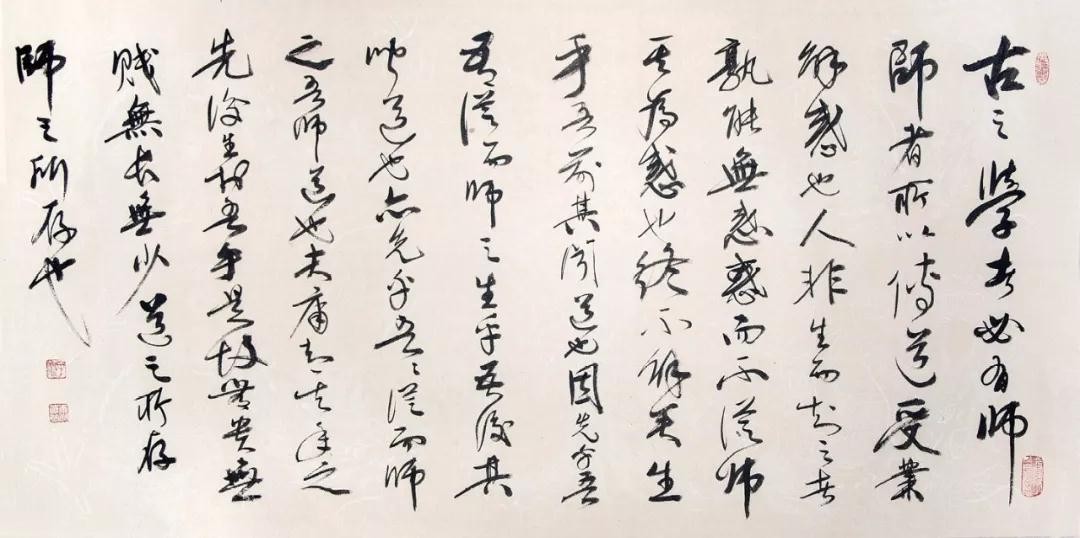 古之學者必有师
師者所以傳道受業
解惑也人非生而知之者
孰能無惑惑而不從师
其為惑也終不解矣生
乎吾前其聞道也固先乎吾
吾從而师之生乎吾後其
聞道也亦先乎吾〻從而师
之吾师道也夫庸知其年之
先後生於吾乎是故無貴無
賤無長無少道之所存
師之所存也